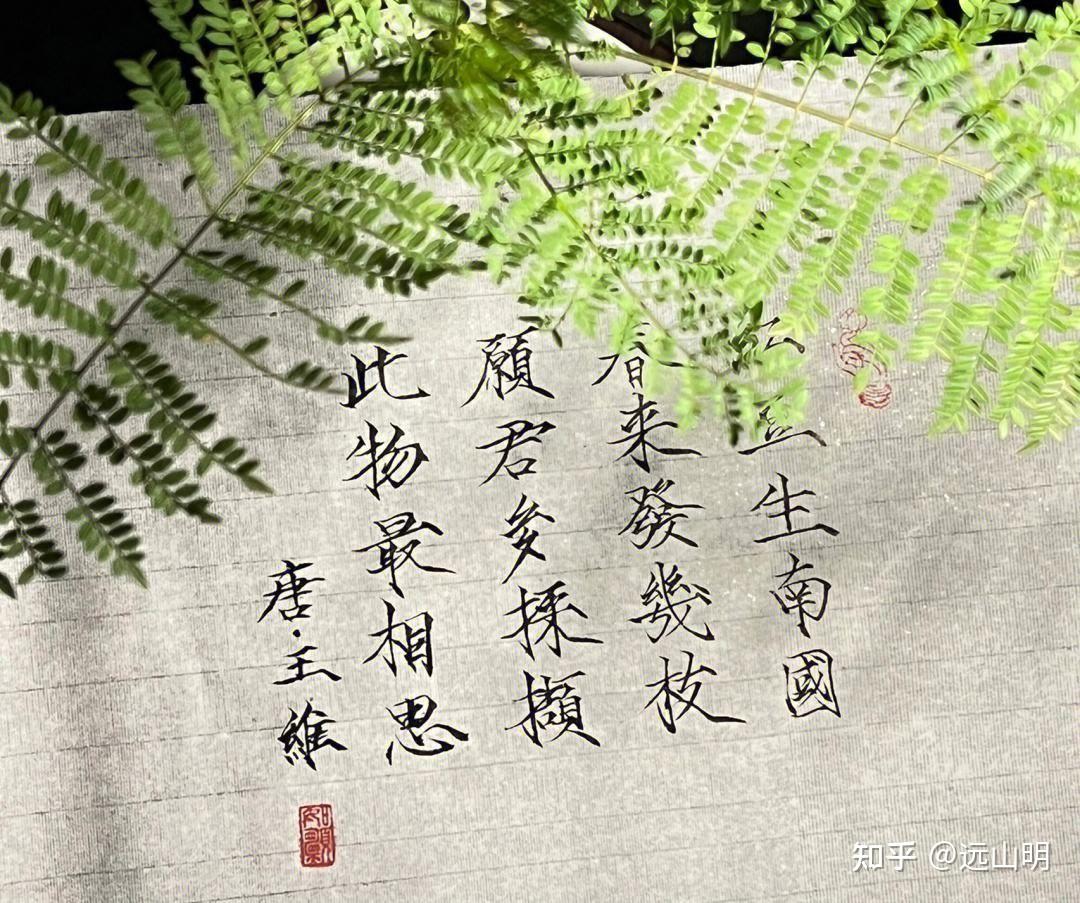 红豆生南國
春来發幾枝
願君多採擷
此物最相思
唐·王維
知乎 @远山明